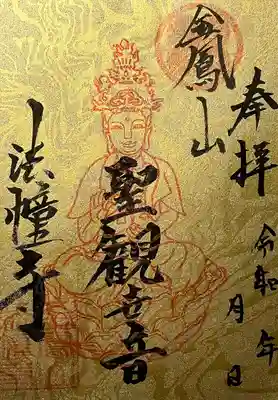 奉拝
令和 年 月 日
金鳳山
聖観世音
法幢寺